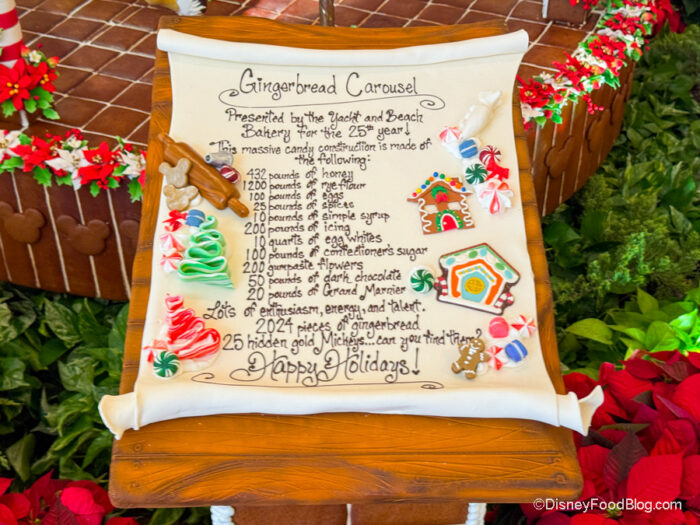 Gingerbread Carousel
Presented by the Yacht and Beach
Bakery for the 25th year!
*This massive candy construction is made of
the following:
432 pounds of honey
1200 pounds of rye flour
100 pounds of eggs
25 pounds of spices
10 pounds of simple syrup
200 pounds of icing
10 quarts of egg whites
100 pounds of confectioner's sugar
200 gumpaste flowers
50 pounds of dark chocolate
20 pounds of Grand Marnier
Lots of enthusiasm, energy, and talent.
2024 pieces of gingerbread
25 hidden gold Mickeys...can you find them?
Happy Holidays!
©DisneyFoodBlog.com